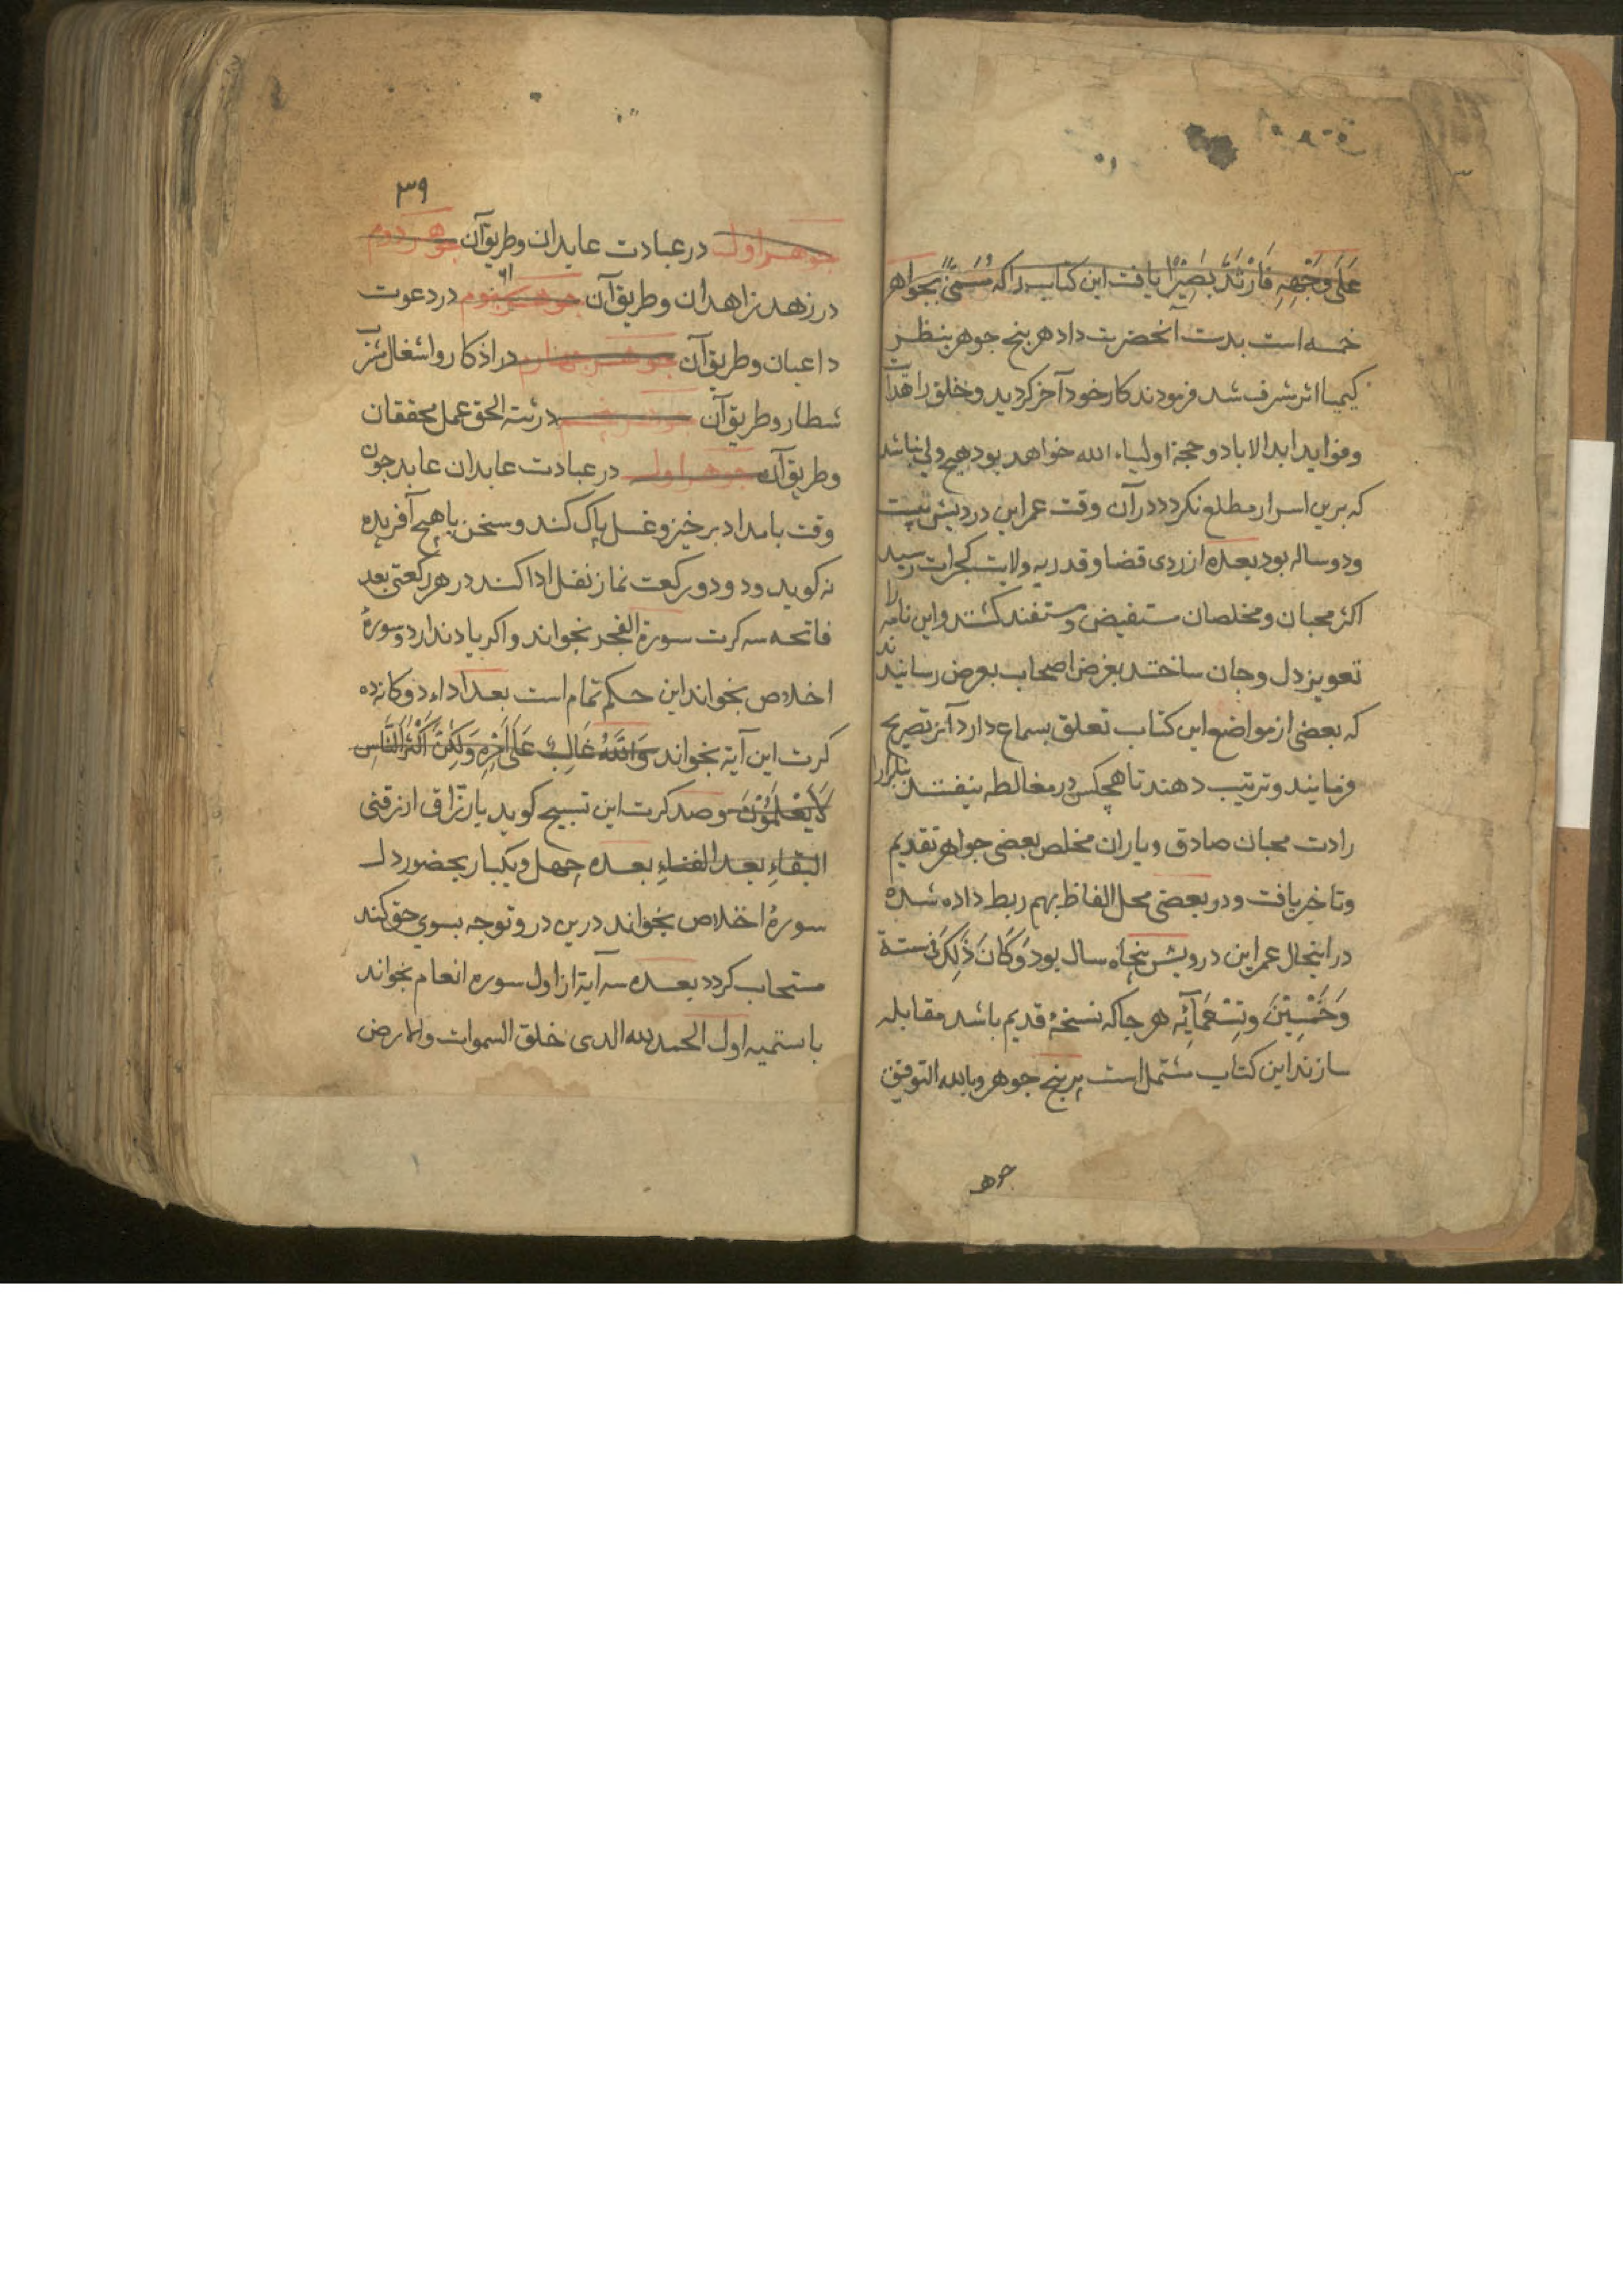 عَلَى وَجْهِهِ فَارْتَدَّ بَصِيْرًا يافت اين كتاب را كه مسمّى بجواهر
خمسه است بدست آنحضرت داد هر پنج جوهر بنظر
كيميا اثر شرف شد فرمودند كار خود آخر كرديد و خلق را هدايت
و فوايد ابد الاباد و حجة اولياء الله خواهد بود هيچ ولی نباشد
كه برين اسرار مطلع نكردد در آن وقت عمر اين درويش بيست
و دو ساله بود بعده از ردی قضا و قدر به ولايت كجرات رسيد
اكثر محبان و مخلصان مستفيض و مستفند كشتند و اين نامه را
تعويز دل و جان ساختند بغرض اصحاب بعرض رسانيدند
كه بعضی از مواضع اين كتاب تعلق بسماع دارد آنرا تصريح
فرمايند و ترتيب دهند تا هيچكس در مغالطه نيفتند
رادت محبان صادق و ياران مخلص بعضی جواهر تقديم
و تاخير يافت و در بعضی محل الفاظ بهم ربط داده شده
در اينحال عمر اين درويش پنجاه سال بود وَكَانَ ذَلِكَ فی سنة
وَخَمْسِيْنَ وتِسْعَمِائَه هر جا كه نسخهٔ قديم باشد مقابله
سازند اين كتاب مشتمل است بر پنج جوهر و بالله التوفيق
جوهر
٣٩
جوهر اول در عبادت عابدان و طريق آن جوهر دوم
در زهد زاهدان و طريق آن جوهر سوم در دعوت
داعيان و طريق آن جوهر چهارم در اذكار و اشغال مشرب
شطار و طريق آن جوهر پنجم در رثة الحق عمل محققان
و طريق آن جوهر اول در عبادت عابدان عابد چون
وقت بامداد برخيز و غسل پاك كند و سخن با هيچ آفريده
نه كويد و دو دو ركعت نماز نفل ادا كند در هر ركعتی بعد
فاتحه سه كرت سورة الفجر بخواند و اكر ياد ندارد سورهٔ
اخلاص بخواند اين حكم تمام است بعد اداء دوكانه ده
كرت اين آية بخواند وَاللّٰهُ غَالِبٌ عَلَى اَمْرِهِ وَلَكِنَّ اَكْثَرَ النَّاسِ
لَا يَعْلَمُوْنَ و صد كرت اين تسبيح كويد يا رزّاق ارزقنی
البقاء بعد الفناء بعده چهل و يكبار بحضور دل
سورهٔ اخلاص بخواند درين در و توجه بسوی حق كند
مستجاب كردد بعده سه آية از اول سوره انعام بخواند
با ستميه اول الحمد لله الذی خلق السموات والارض